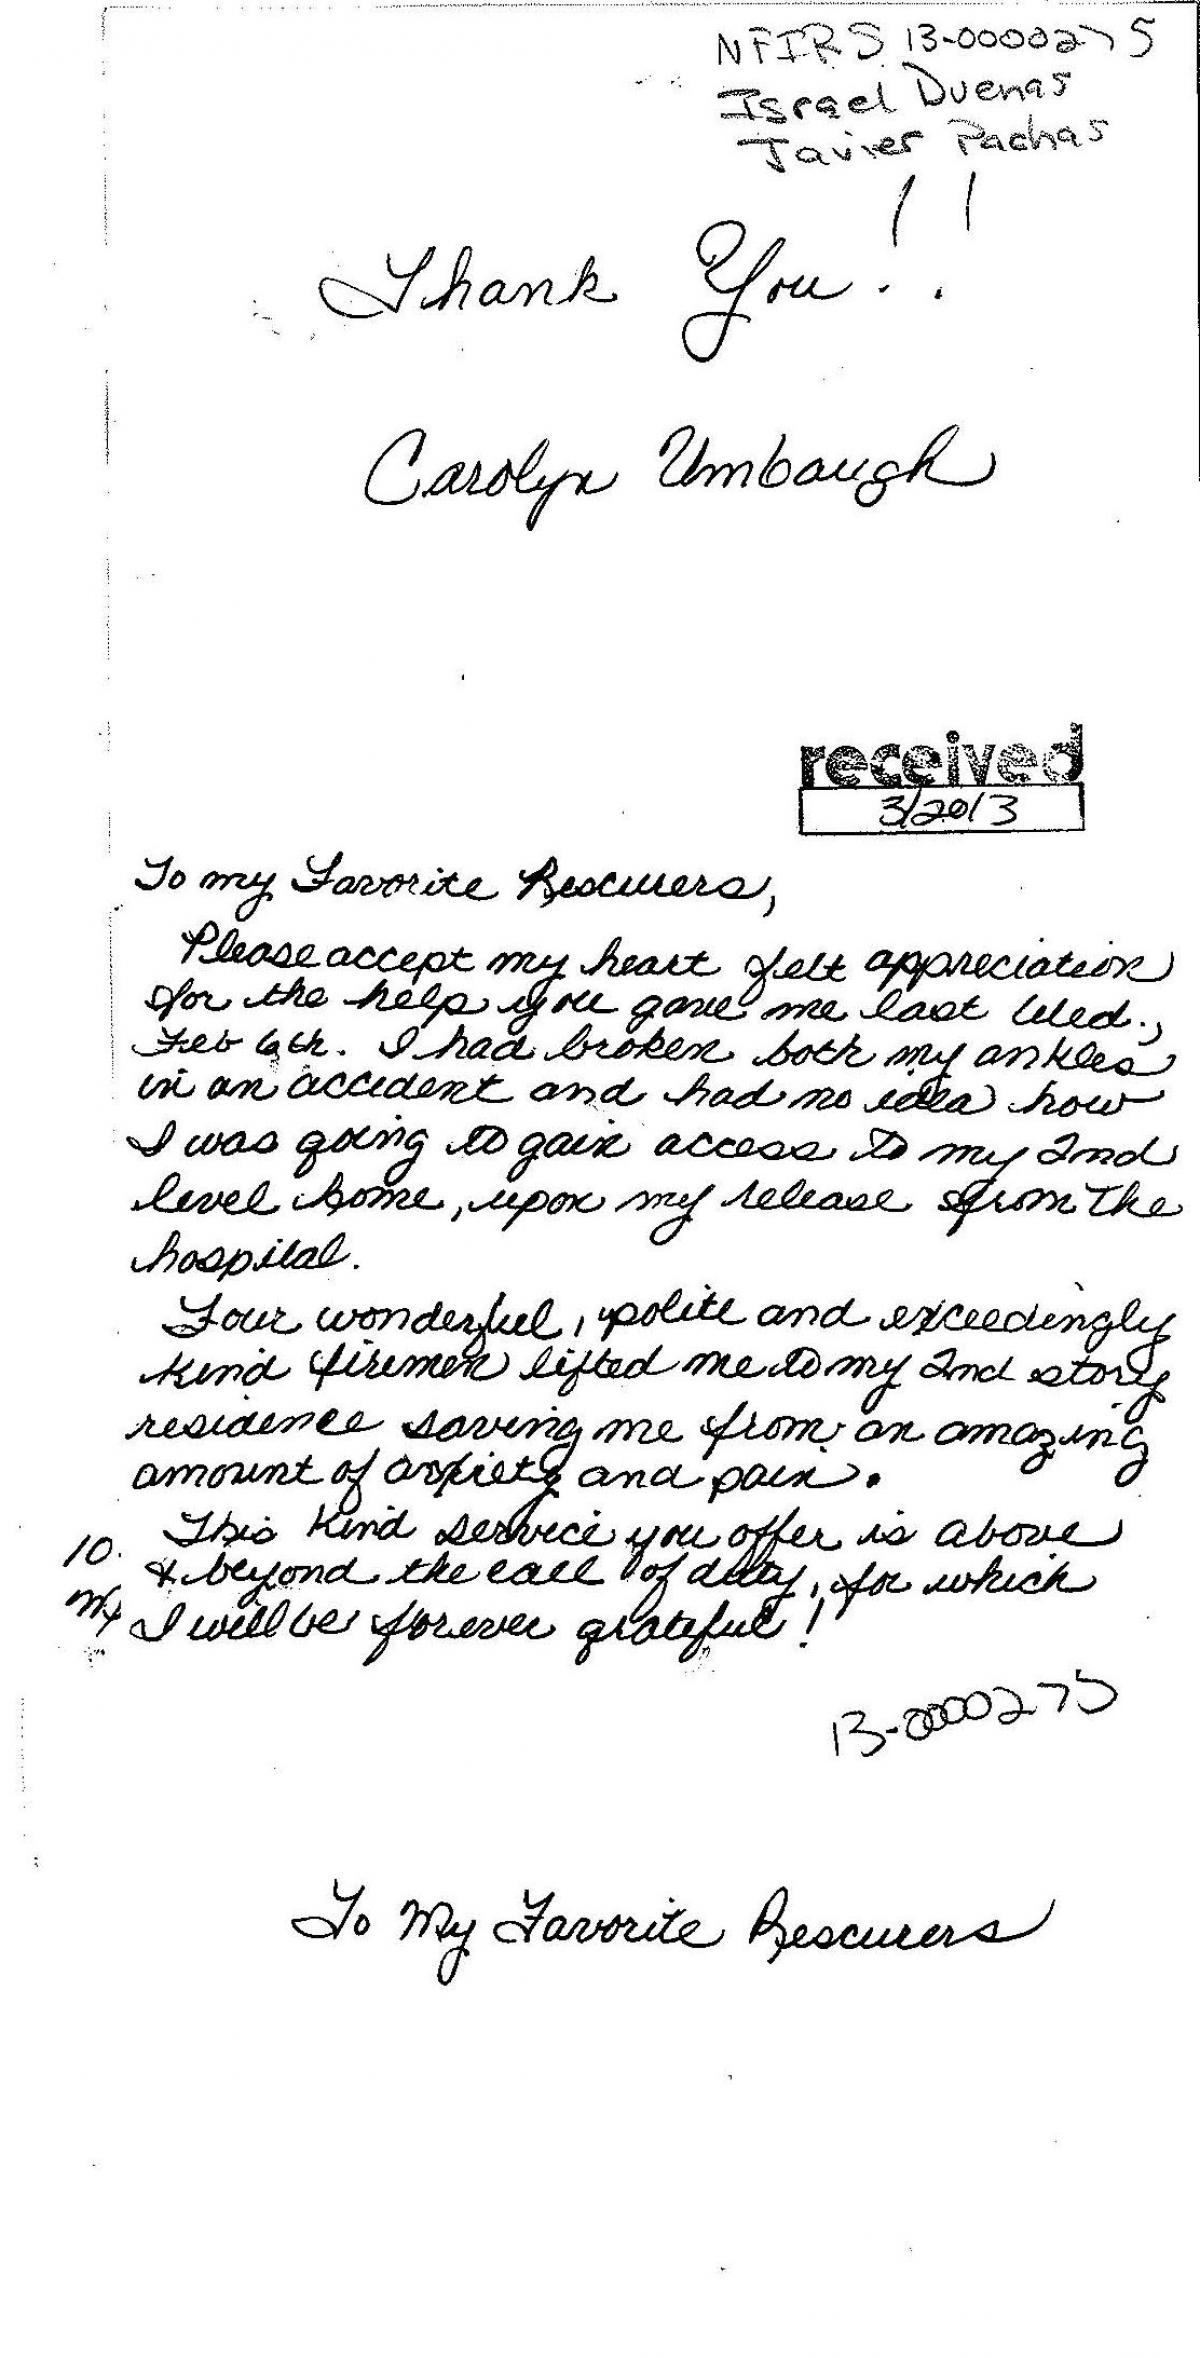 NFIRS 13-0000275
Israel Duenas
Javier Pachas
Thank You!!
Carolyn Umbaugh
received
3/2013
To my Favorite Rescurers,
Please accept my heart felt appreciation
for the help you gave me last Wed.,
Feb 6th. I had broken both my ankles
in an accident and had no idea how
I was going to gain access to my 2nd
level home, upon my release from the
hospital.
Four wonderful, polite and exceedingly
kind firemen lifted me to my 2nd story
residence saving me from an amazing
amount of anxiety and pain.
This kind service you offer is above
10.
& beyond the call of duty, for which
I will be forever grateful!
13-0000275
To My Favorite Rescurers